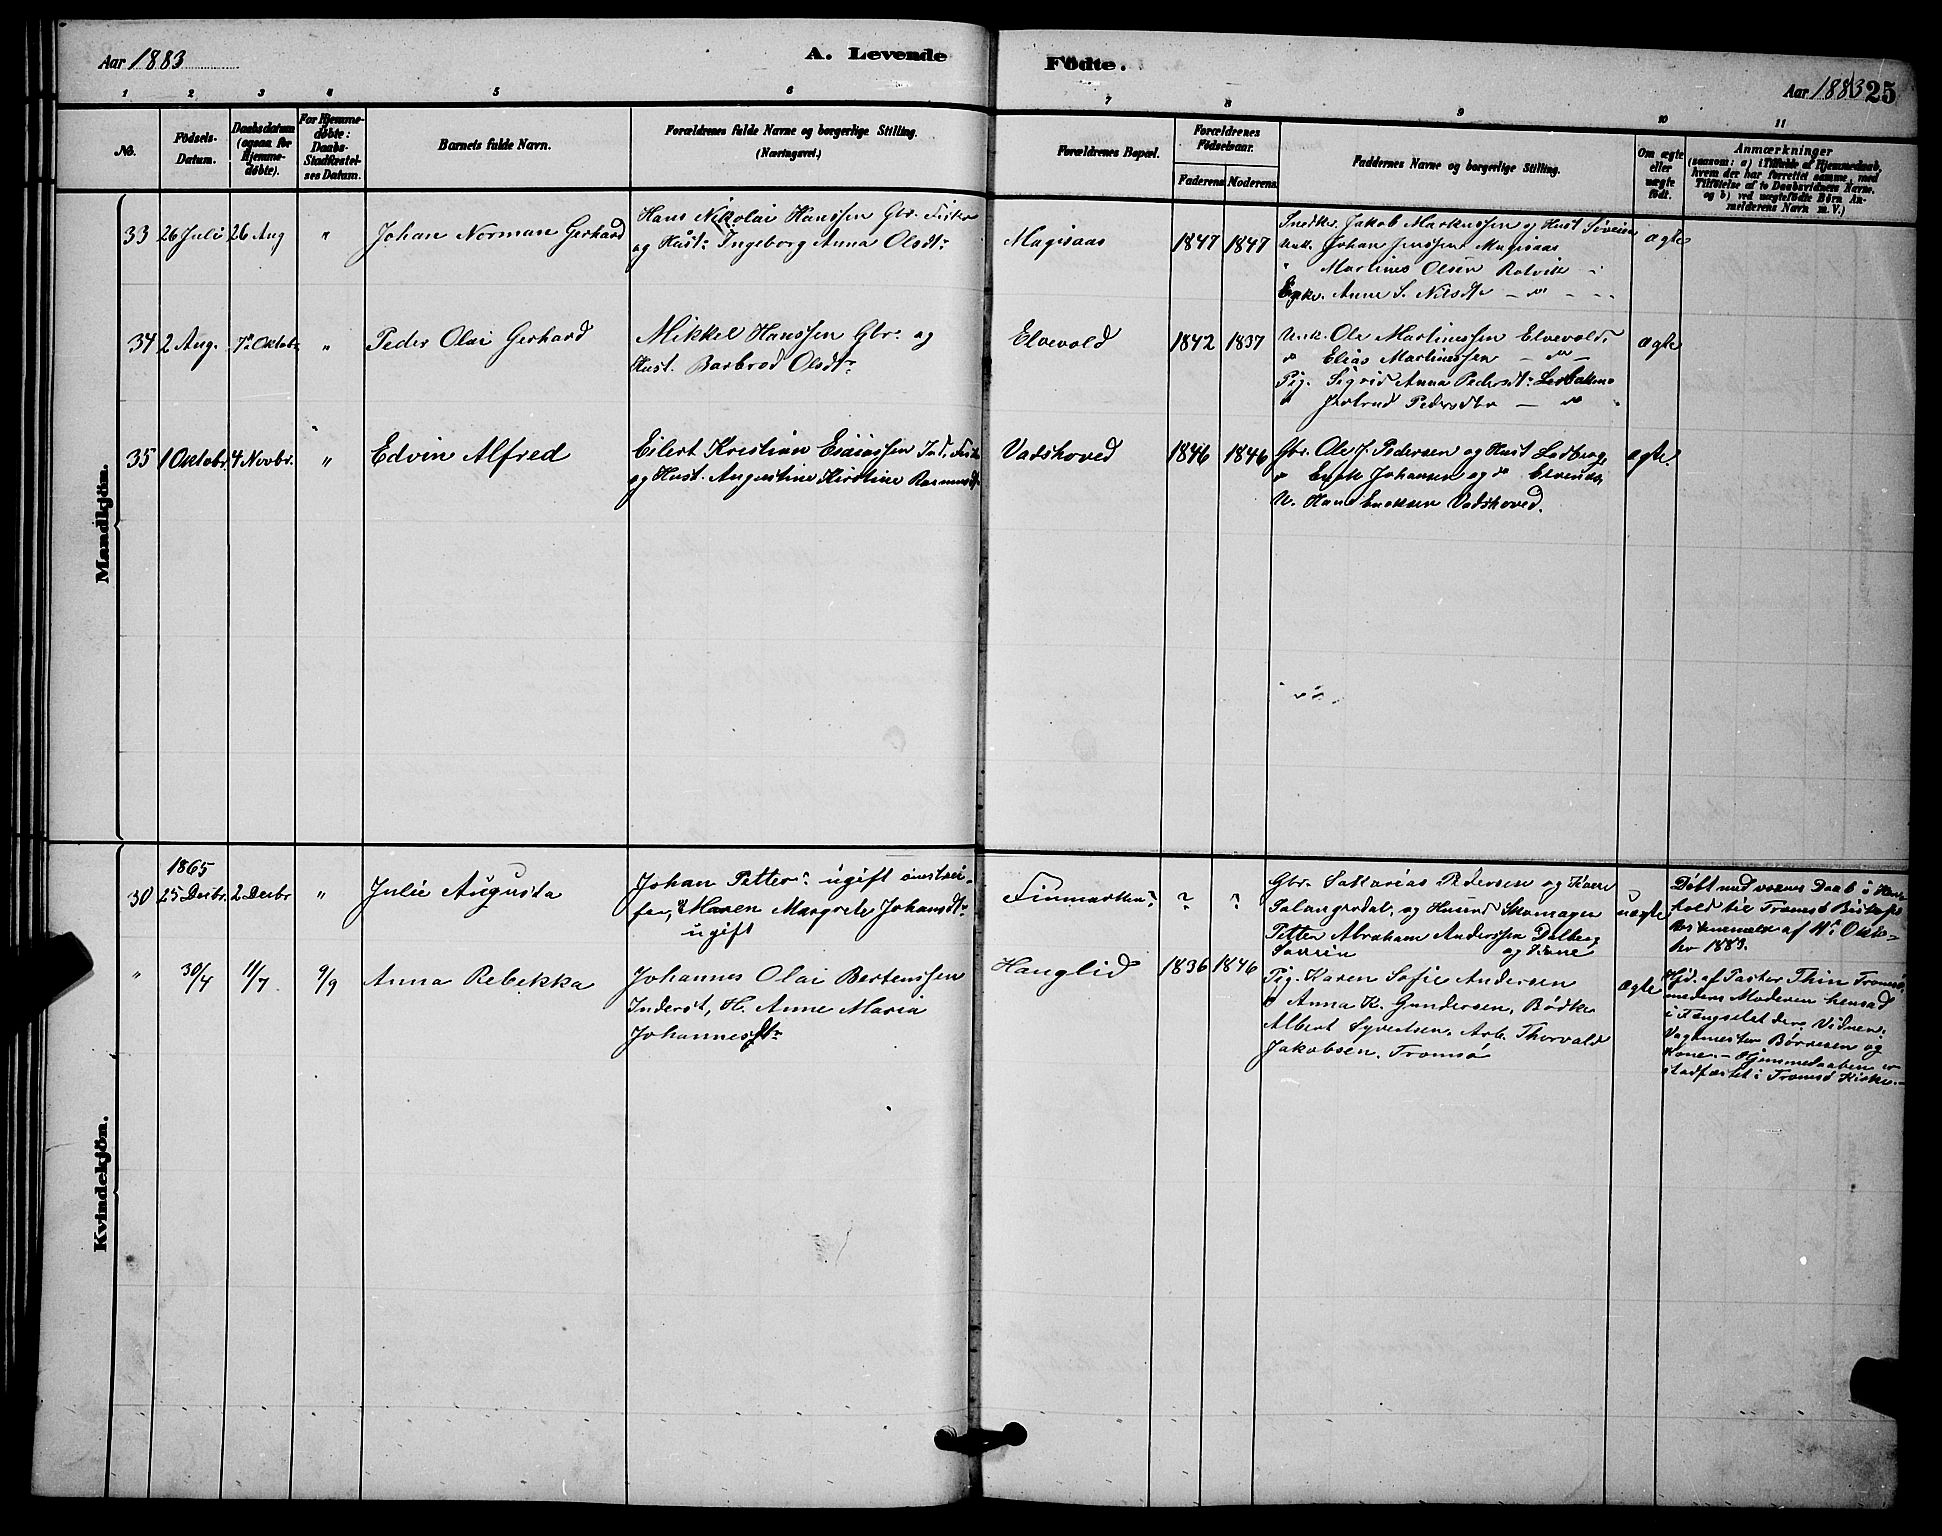 Aar 1883
A. Levende
Födte.
Aar 1883
25
1 2 3 4 5 6 7 8 9 10 11
No.
Födsels-
Datum.
Daabsdatum
(ogsaa for
Hjemme-
döbte).
For Hjemme-
døbte:
Daabs-
Stadfæstel-
ses Datum.
Barnets fulde Navn.
Forældrenes fulde Navne og borgerlige Stilling.
(Næringsvei.)
Forældrenes Bopæl.
Forældrenes
Födselsaar.
Faderens Moderens
Faddernes Navne og borgerlige Stilling.
Om ægte
eller
uægte
født.
Anmærkninger
(saasom: a) i Tilfælde af Hjemmedaab,
hvem der har forrettet samme, med
Tilföielse af to Daabsvidners Navne.
og b) ved uægtefødte Börn An-
melderens Navn m. V.)
Mandkjön.
33 26 Juli 26 Aug " Johan Norman Gerhard
Hans Nikolai Hanssen Gbr. Fisker
og Hust: Ingeborg Anna Olsdt:
Magisaas 1847 1847
Snedkr. Jakob Markussen og Hust
Johan Jenssen Magisaas
" Martines Olsen Rotvik "
Anne S. Nilsdt - " -
ægte
34 2 Aug. 7de Oktob. " Peder Olai Gerhard
Mikkel Hanssen Gbr. og
Hust. Barbrod Olsdt:
Elvevold 1842 1837
Unk. Ole Martinussen Elvevold.
" Elias Martinussen - " -
Pig. Sigrid Anna Pedersdt:
" Pedersdtr - " "
ægte
35 1 Oktobr. 4 Novbr. " Edvin Alfred
Eilert Kristian Esaiassen Ind. Fisker
og Hust. Augustine Kirstine Rasmusdt.
Vadshoved 1846 1846
Gbr. Ole J. Pedersen og Hust Lodberg,
" Johansen og "
U. Hans Enoksen Vadshoved.
ægte.
Kvindekjön.
1865
30 25 Decbr. 2 Decbr " Julie Augusta
Johan Petter: ugift
Maren Margrete Johansdt:
ugift
Finmarken? ? ?
Gbr. Sakarias Pedersen og Kone
Salangsdal, og Skomager
Petter Abraham Anderssen Dalberg
og Kone
uægte
Döbt med Daab i Hen-
hold til Tromsö Bispe
af 11te Okto-
ber 1883.
" 30/4 11/7. 9/9 Anna Rebekka
Johannes Olai Bertenssen
Inderst, H. Anne Maria
Johannesdtr
Hanglid 1836 1846
Pig. Karen Sofie Andersen
" Anna K. Gundersen, Bödker
Albert Syvertsen, Arb. Thorvald
Jakobsen, Tromsö
ægte
Hjd. af Pastor Thin Tromsö,
medens Moderen hensad
i Fængslet der. Vidner:
Vagtmester Börresen og
Kone. - Hjemmedaaben er
stadfæstet i Tromsö Kirke. -